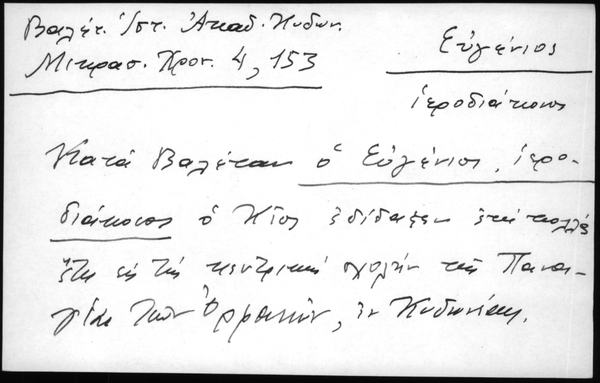 Βαλέτ. Ἱστ. Ἀκαδ. Κυδων.
Μικρασ. Χρον. 4, 153
Εὐγένιος
ἱεροδιάκονος
Κατὰ Βαλέταν ὁ Εὐγένιος, ἱερο-
διάκονος ὁ Χῖος ἐδίδαξεν ἐπὶ πολλὰ
ἔτη εἰς τὴν κεντρικὴν σχολὴν τῆς Πανα-
γίας τῶν Ὀρφανῶν, ἐν Κυδωνίαις.